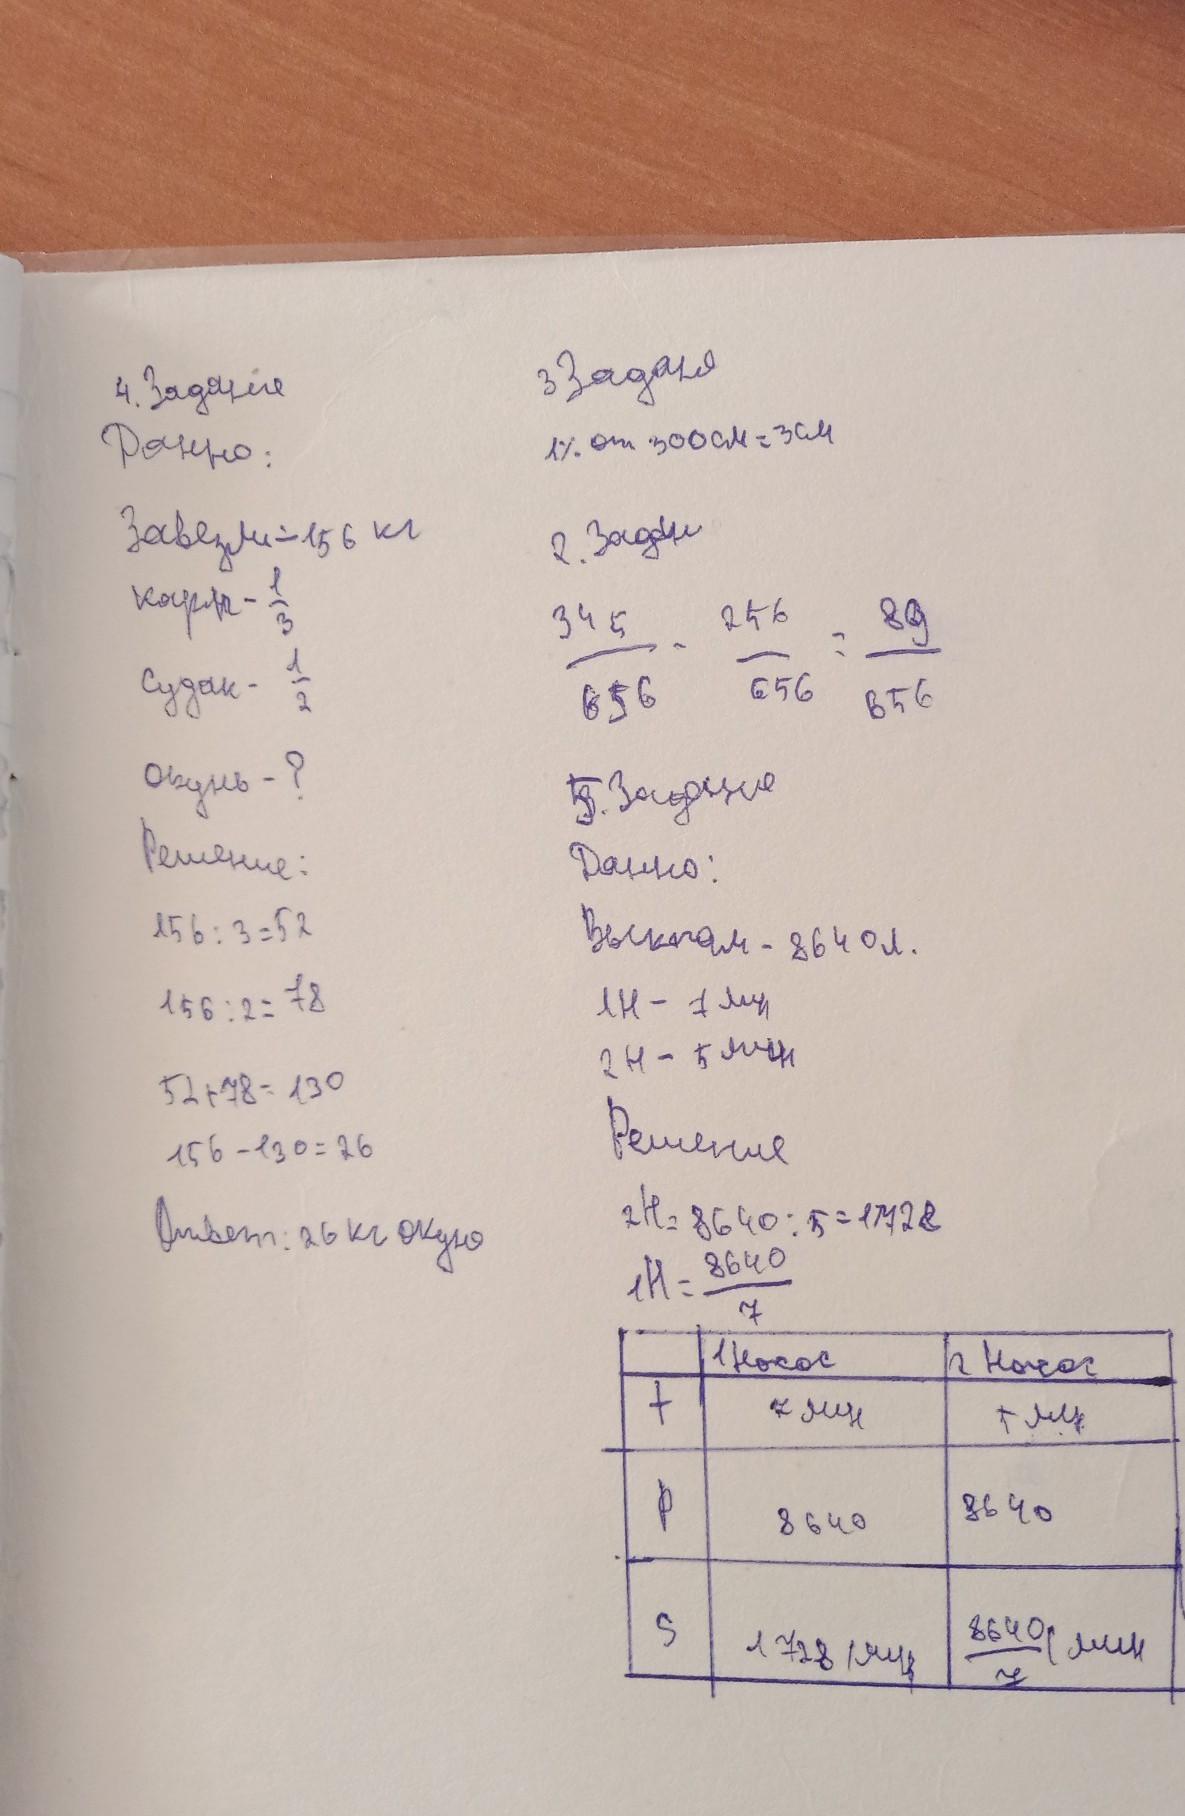 4. Задание
Данно:
Завезли = 156 кг
карп - 1/3
Судак - 1/2
окунь - ?
Решение:
156 : 3 = 52
156 : 2 = 78
52 + 78 = 130
156 - 130 = 26
Ответ: 26 кг окуня
3 Задания
1% от 300см = 3см
2. Задан
345/656 - 256/656 = 89/656
5. Задание
Данно:
Выкачали - 8640 л.
1Н - 7 мин
2Н - 5 мин
Решение
2Н = 8640 : 5 = 1728
1Н = 8640/7
1 Насос 2 Насос
t 7 мин 5 мин
P 8640 8640
S 1728/мин 8640/7 / мин